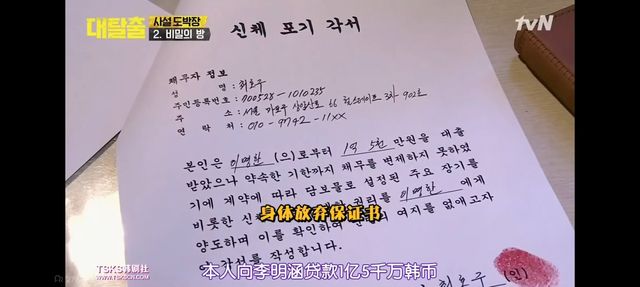 대탈출
사설 도박장
2. 비밀의 방
tvN
신체 포기 각서
채무자 정보
성 명 : 최호구
주민등록번호 : 700528-1010235
주 소 : 서울 마포구 상암산로 66 힐스테이트 3차 902호
연 락 처 : 010-9742-11xx
본인은 이명한 (으)로부터 1억 5천 만원을 대출
받았으나 약속한 기한까지 채무를 변제하지 못하였
기에 계약에 따라 담보물로 설정된 주요 장기를
비롯한 신 권리를 이명한 에게
양도하며 이를 확인하여 여지를 없애고자
각서를 작성합니다.
최호구 (인)
身体放弃保证书
本人向李明涵贷款1亿5千万韩币
TSKS韩剧社
WWW.TSKSCN.COM